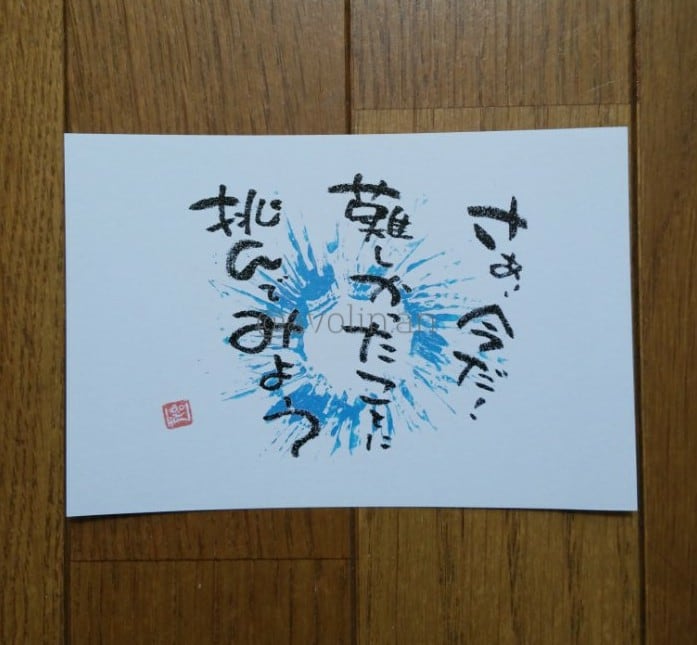 さあ、今だ！
難しかったことに
挑んでみよう